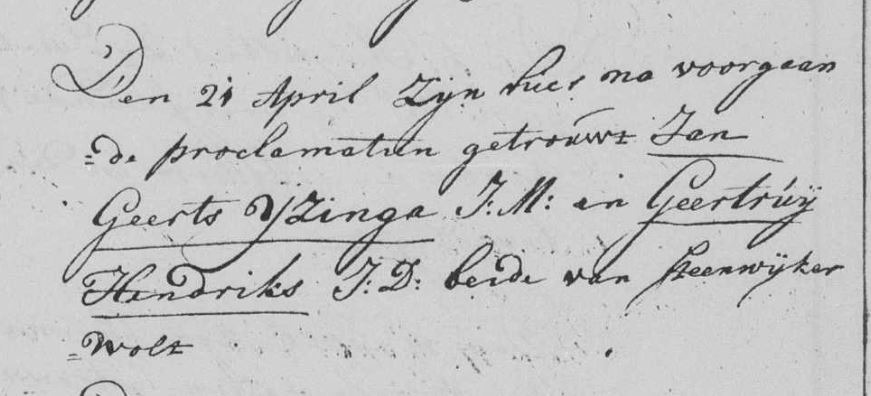 Den 21 April Zyn hier na voorgaan
=de proclamatien getrouwt Jan
Geerts YZinga J: M: en Geertruÿ
Hendriks J: D: beide van Steenwÿker
=wolt